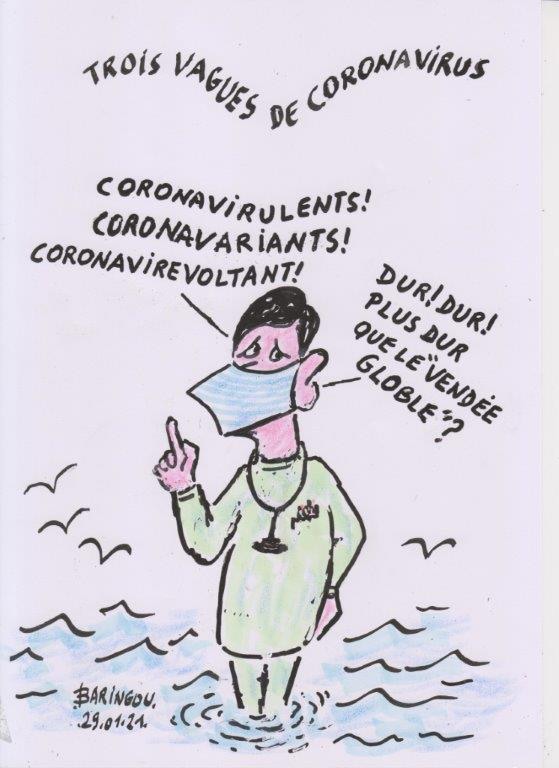 TROIS VAGUES DE CORONAVIRUS
CORONAVIRULENTS!
CORONAVARIANTS!
CORONAVIREVOLTANT!
DUR! DUR!
PLUS DUR
QUE LE "VENDÉE
GLOBLE"?
BARINGOU.
29.01.21.